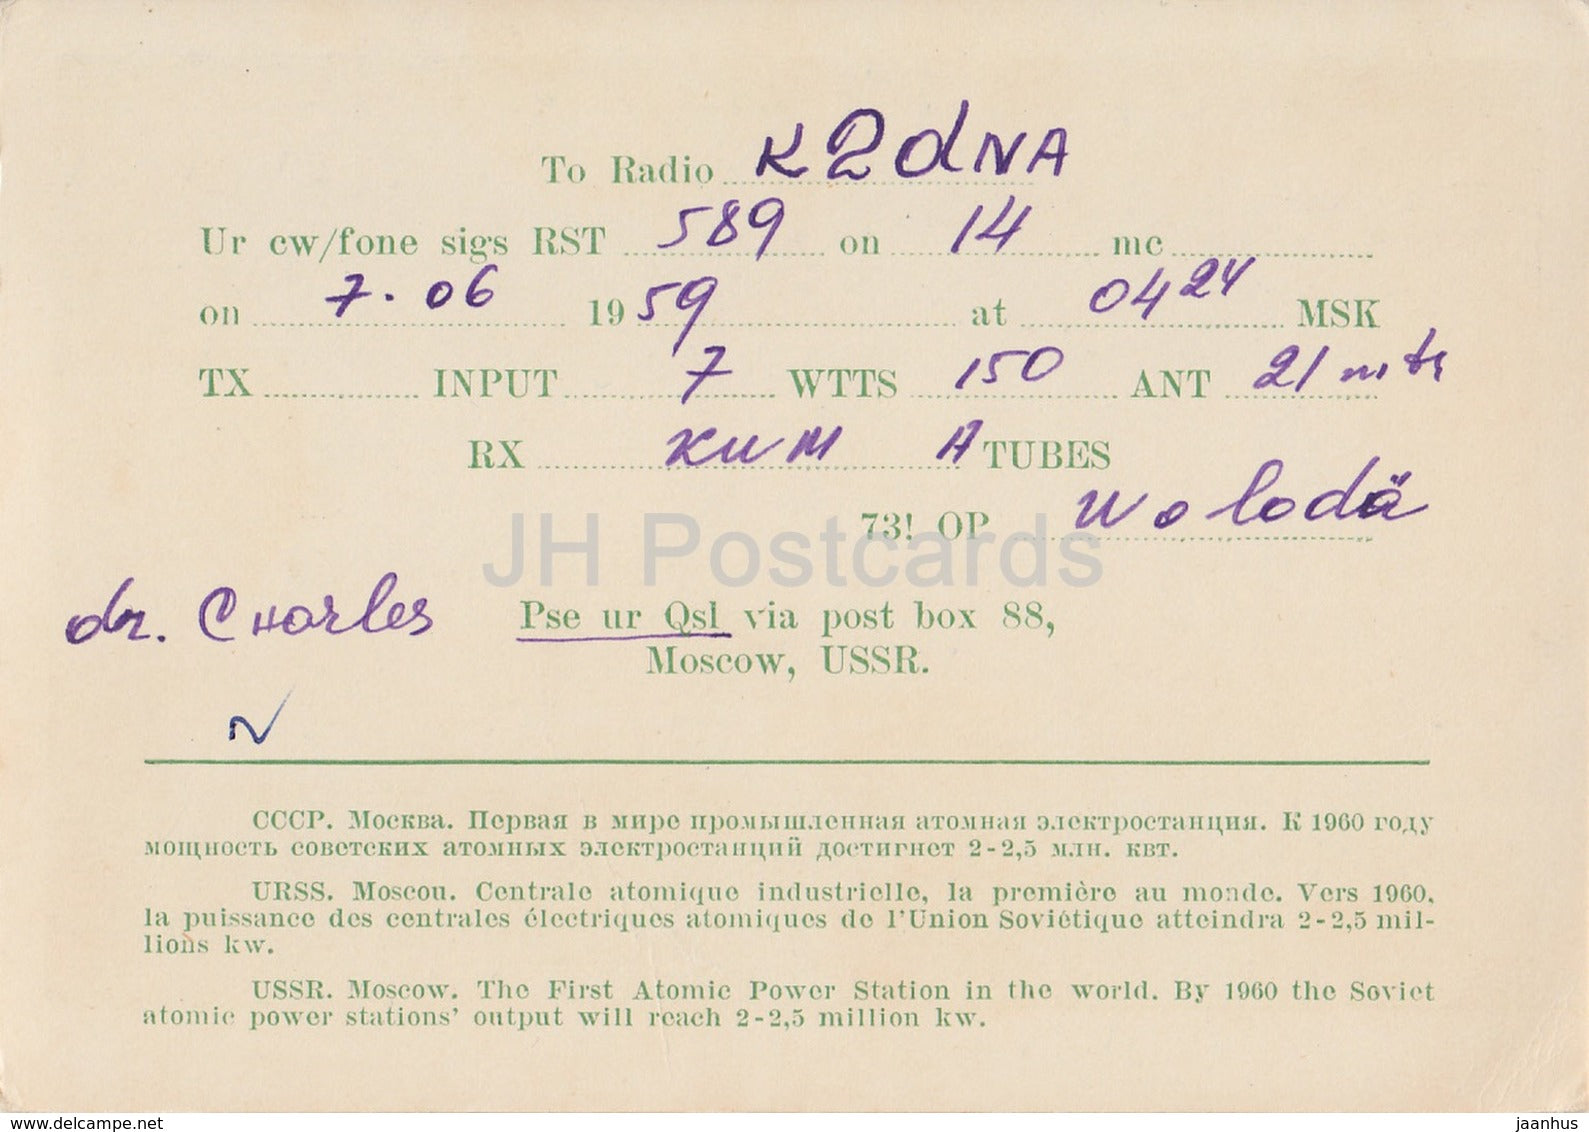 To Radio K2dNA
Ur cw/fone sigs RST 589 on 14 mc
on 7.06 1959 at 0424 MSK
TX INPUT 7 WTTS 150 ANT 21 mtr
RX KUM A TUBES
73! OP Wolodä
JH Postcards
dr. Charles Pse ur Qsl via post box 88,
Moscow, USSR.
СССР. Москва. Первая в мире промышленная атомная электростанция. К 1960 году
мощность советских атомных электростанций достигнет 2-2,5 млн. квт.
URSS. Moscou. Centrale atomique industrielle, la première au monde. Vers 1960,
la puissance des centrales électriques atomiques de l'Union Soviétique atteindra 2-2,5 mil-
lions kw.
USSR. Moscow. The First Atomic Power Station in the world. By 1960 the Soviet
atomic power stations' output will reach 2-2,5 million kw.
www.delcampe.net jaanhus